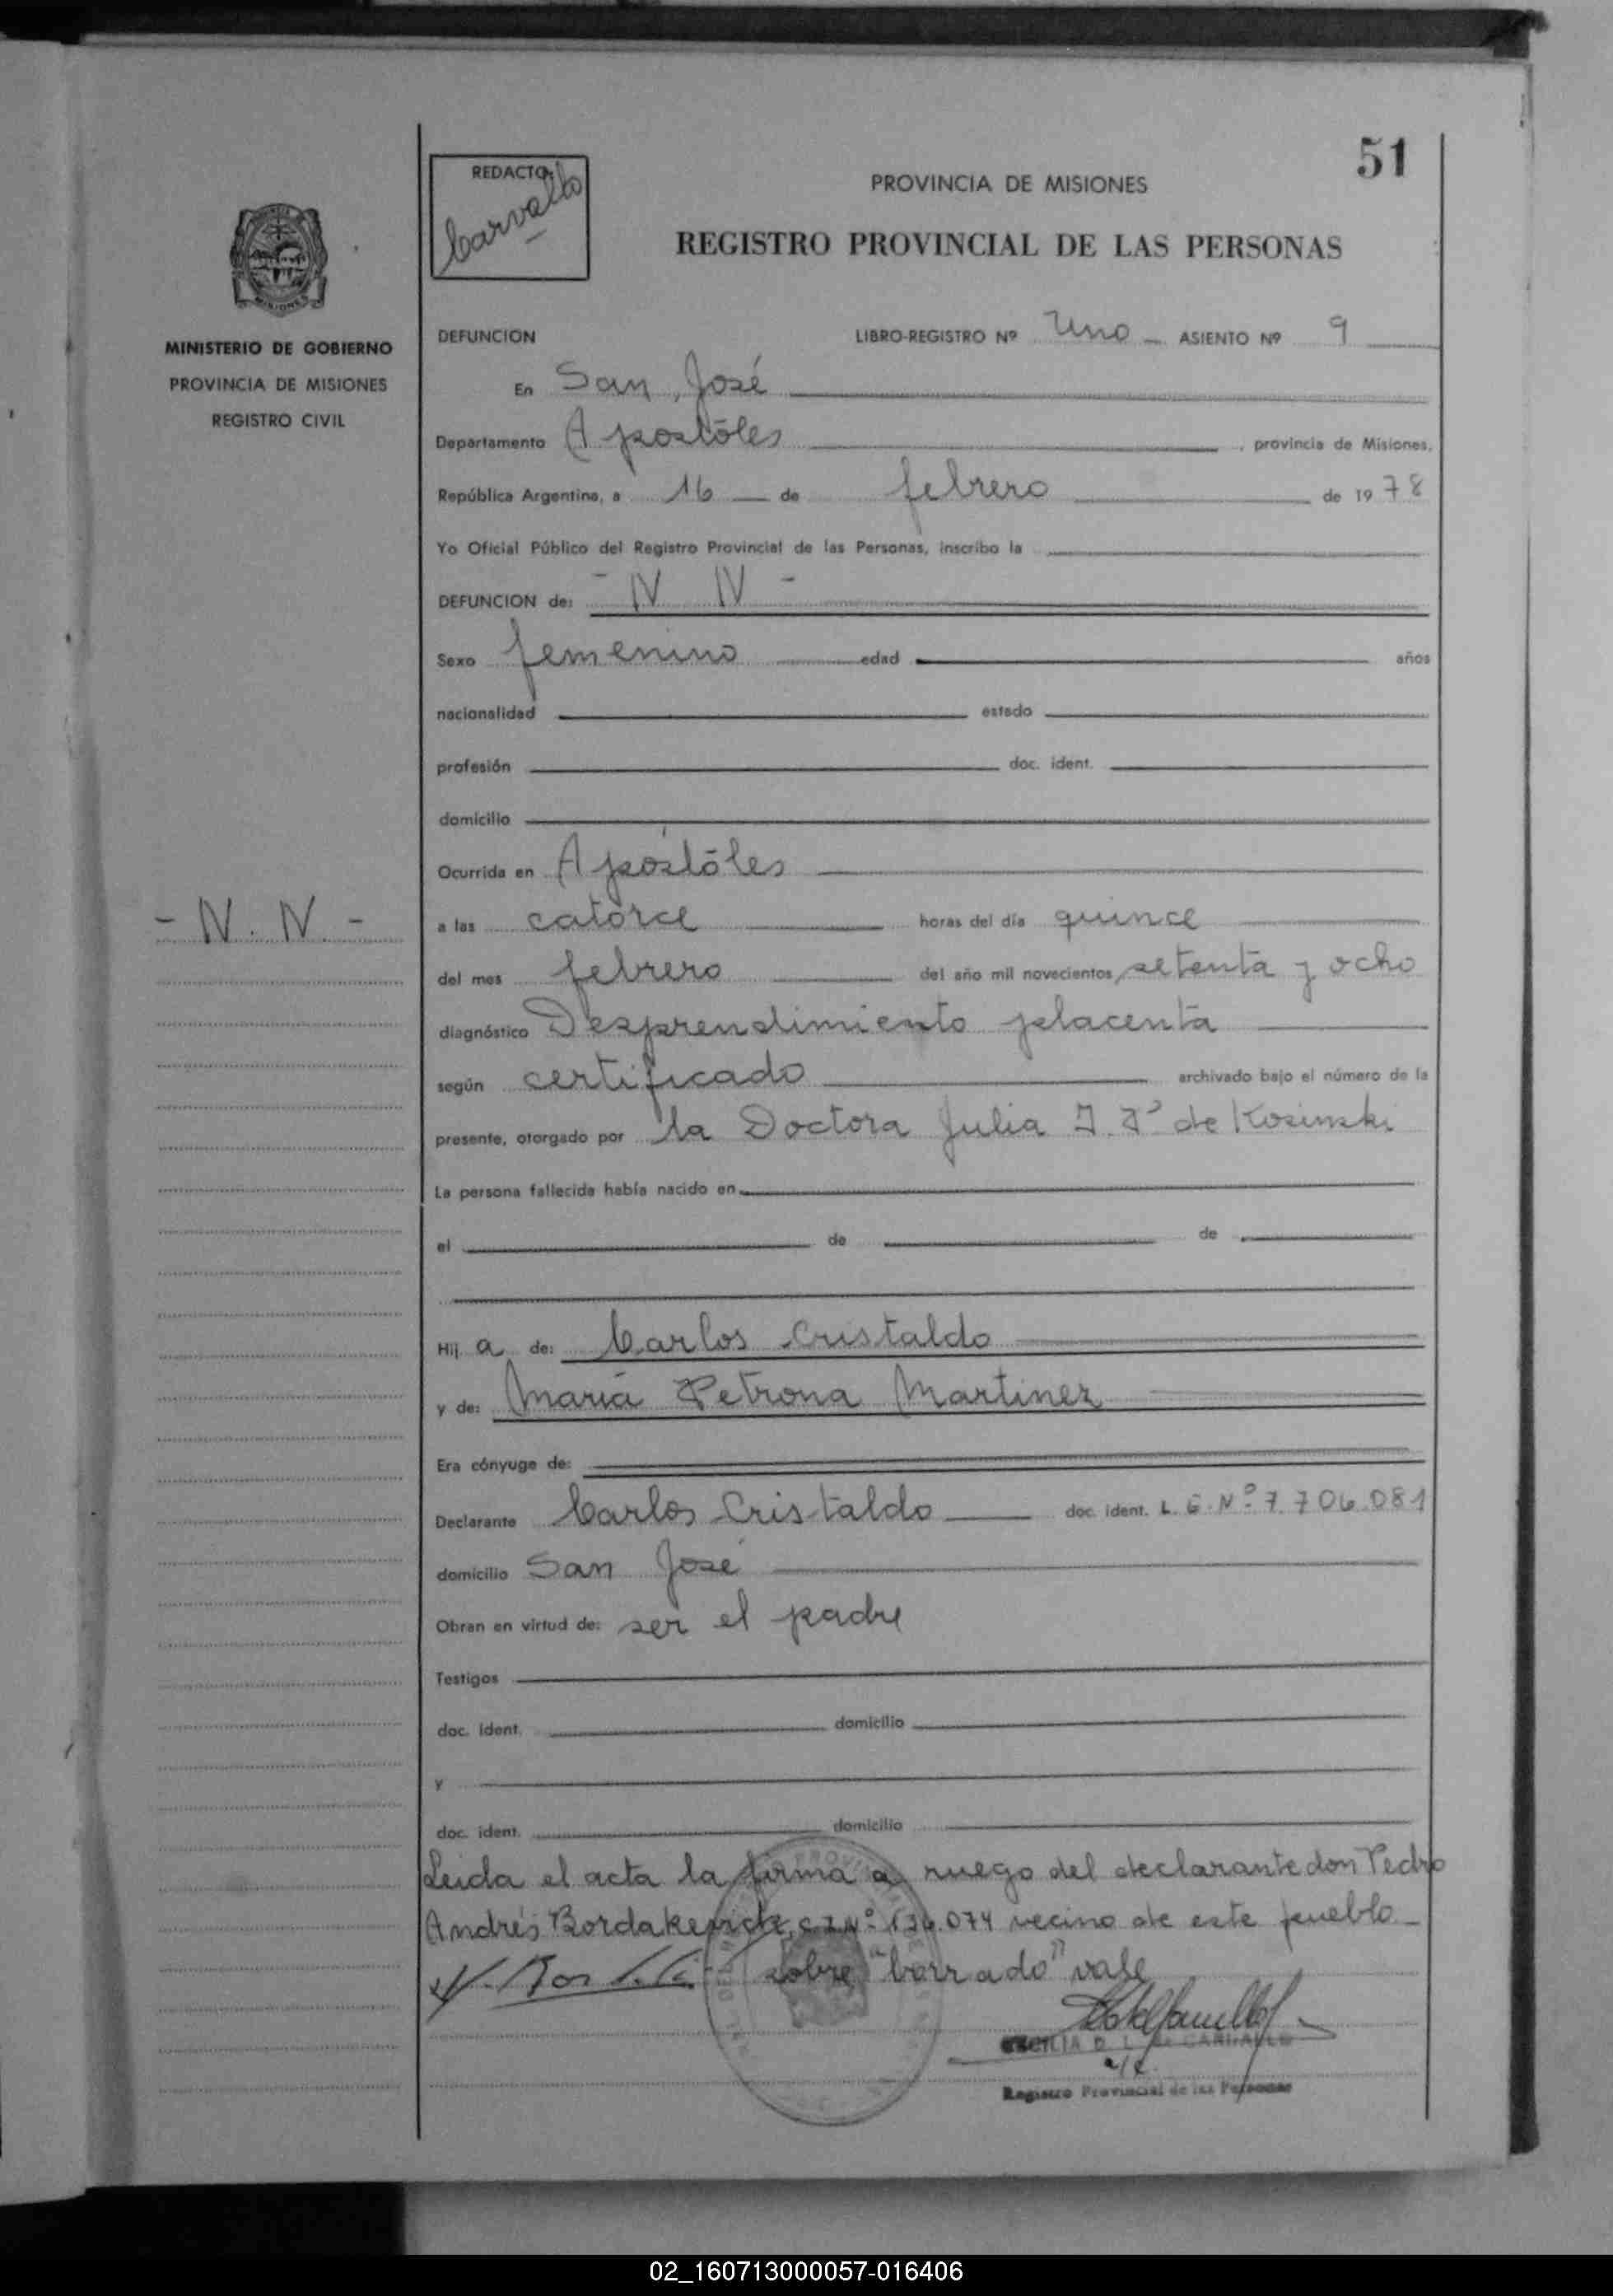 51
REDACTO:
Carvallo
PROVINCIA DE MISIONES
REGISTRO PROVINCIAL DE LAS PERSONAS
MISIONES
MINISTERIO DE GOBIERNO
PROVINCIA DE MISIONES
REGISTRO CIVIL
DEFUNCION LIBRO-REGISTRO Nº Uno ASIENTO Nº 9
En San José
Departamento Apostóles, provincia de Misiones,
República Argentina, a 16 de febrero de 1978
Yo Oficial Público del Registro Provincial de las Personas, inscribo la
DEFUNCION de: - N N -
Sexo femenino edad años
nacionalidad estado
profesión doc. ident.
domicilio
Ocurrida en Apostóles
- N. N. -
a las catorce horas del día quince
del mes febrero del año mil novecientos setenta y ocho
diagnóstico Desprendimiento placenta
según certificado archivado bajo el número de la
presente, otorgado por la Doctora Julia de Kosinski
La persona fallecida había nacido en
el de de
Hij a de: Carlos Cristaldo
y de: María Petrona Martinez
Era cónyuge de:
Declarante Carlos Cristaldo doc. ident. L. E. Nº 7.706.081
domicilio San José
Obran en virtud de: ser el padre
Testigos
doc. ident. domicilio
y
doc. ident. domicilio
Leida el acta la firma a ruego del declarante don Pedro
Andrés 074 vecino de este pueblo
sobre "borrado" vale
CECILIA D. L. de CARVALLO
Registro Provincial de las Personas
02_160713000057-016406